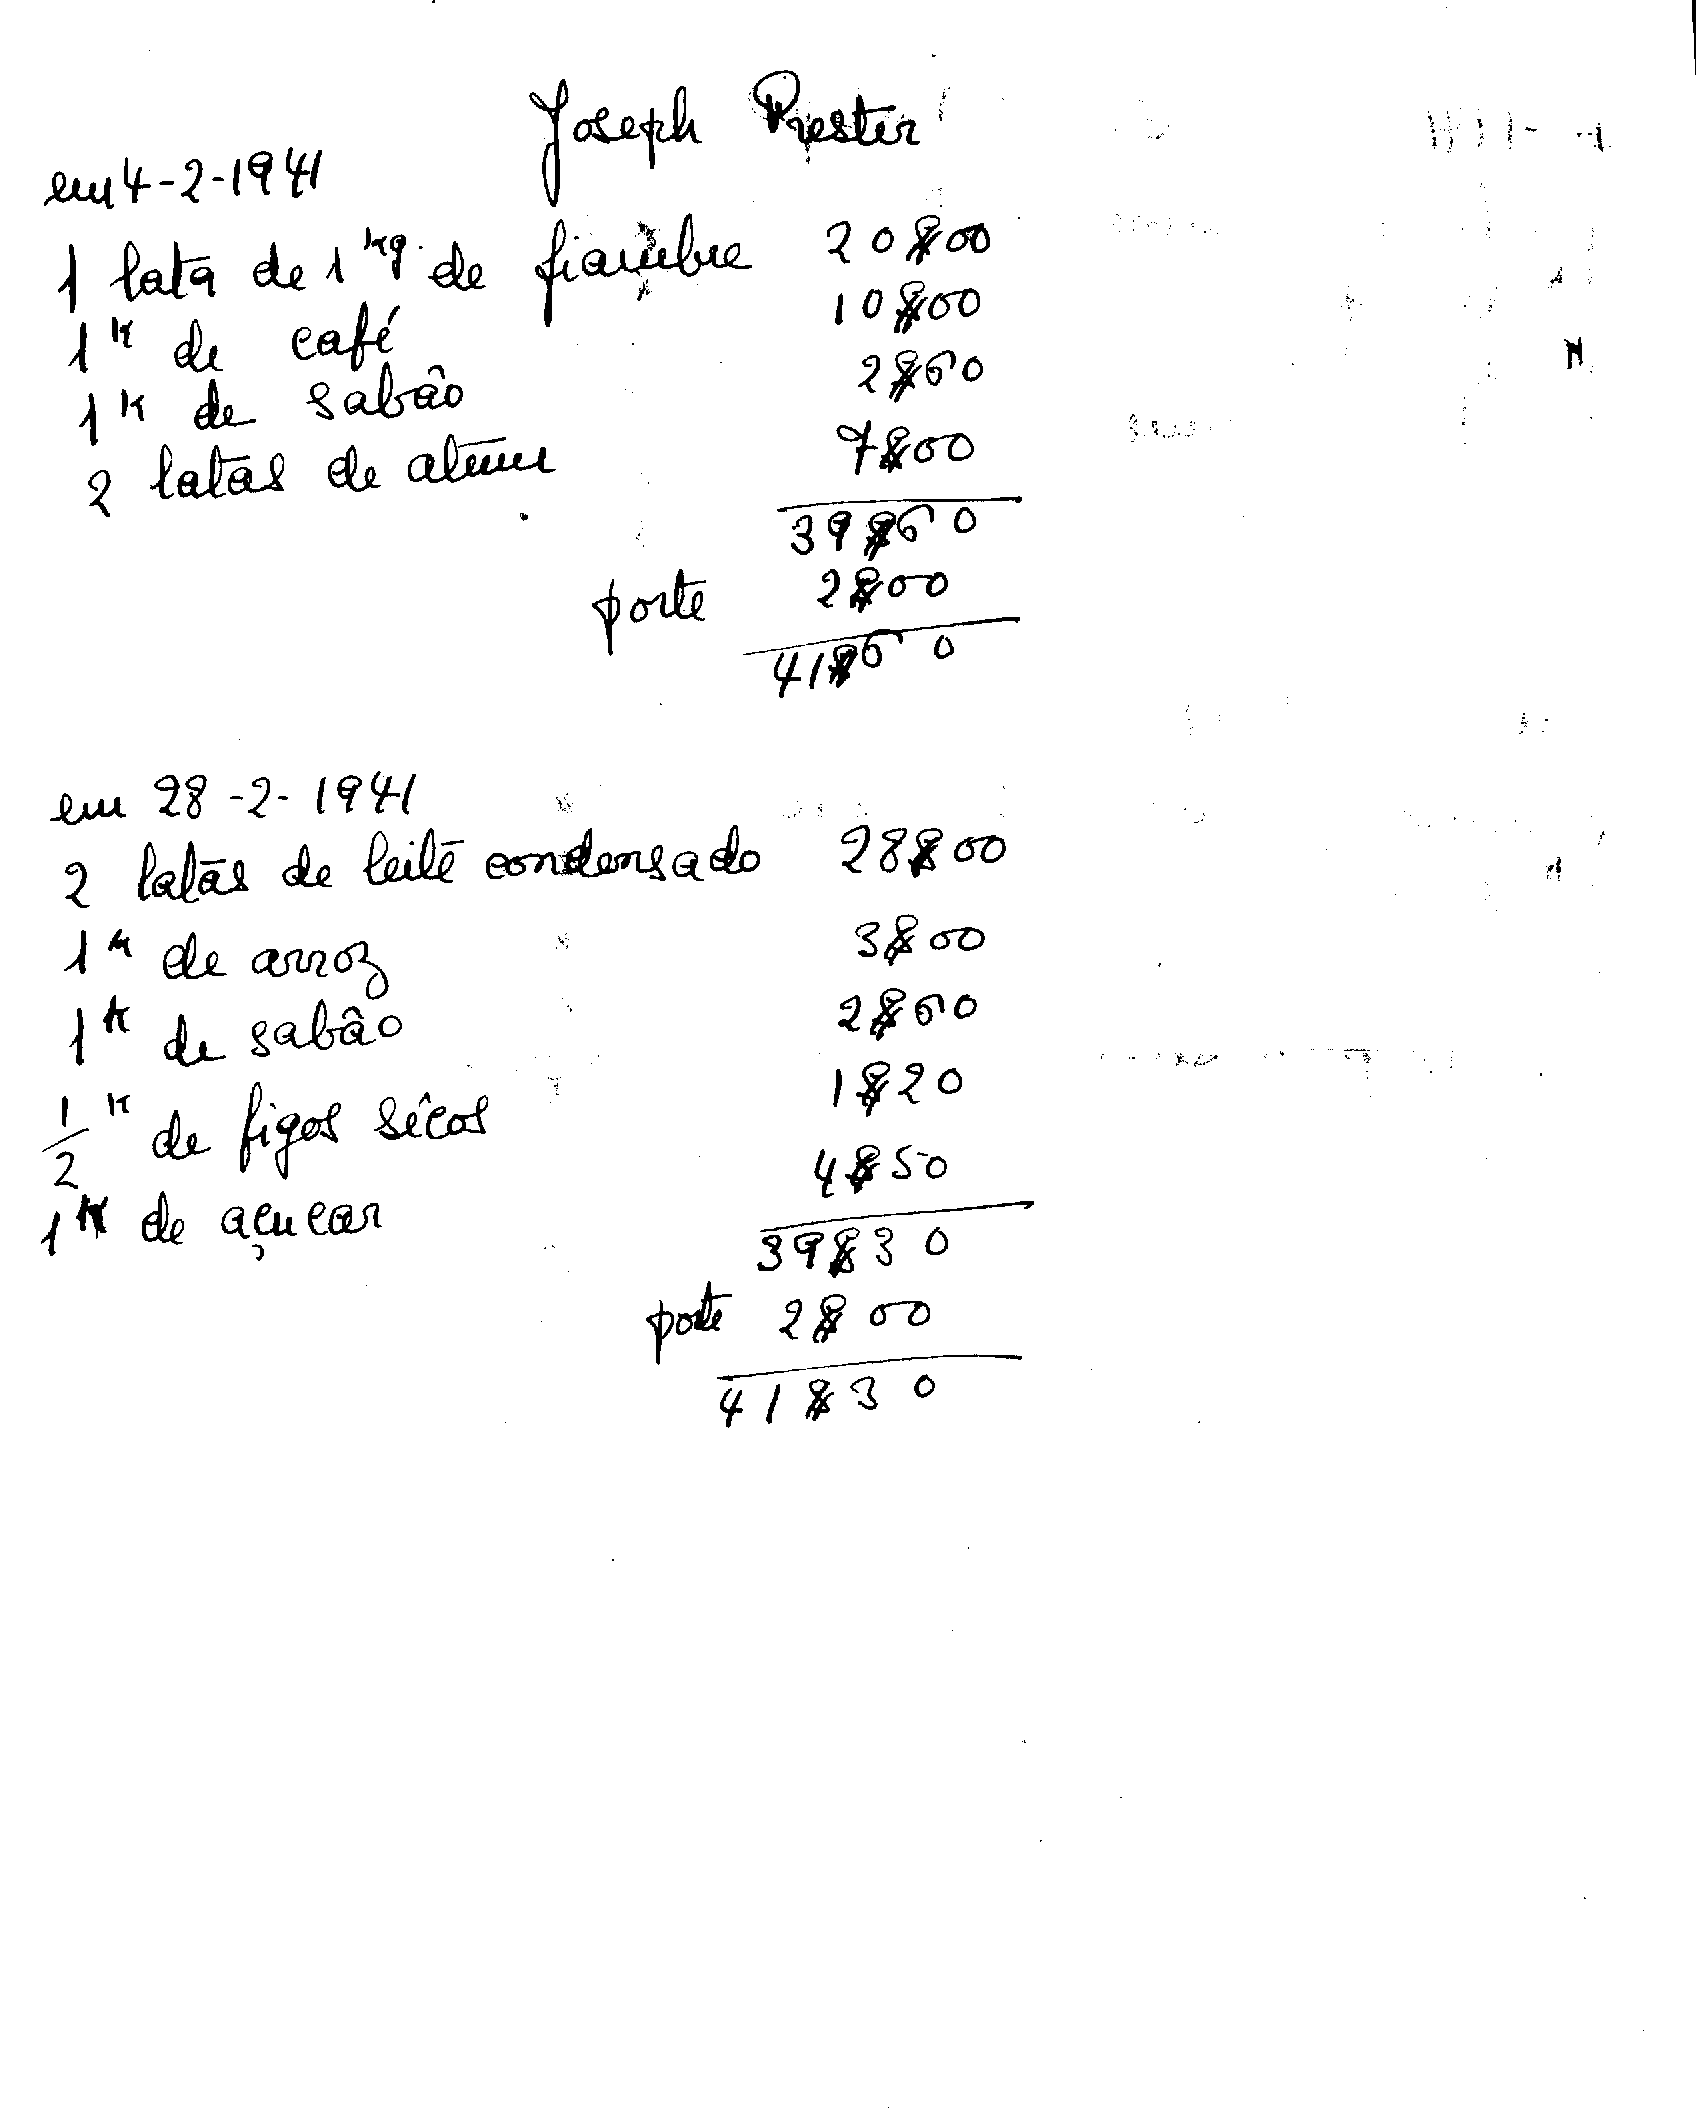 Joseph Priester
em 4-2-1941
1 lata de 1 kg. de fiambre 20$00
1 K de café 10$00
1 K de sabão 2$60
2 latas de atum 7$00
39$60
porte 2$00
41$60
em 28-2-1941
2 latas de leite condensado 28$00
1 K de arroz 3$00
1 K de sabâo 2$60
1/2 K de figos sêcos 1$20
1 K de açucar 4$50
39$30
porte 2$00
41$30